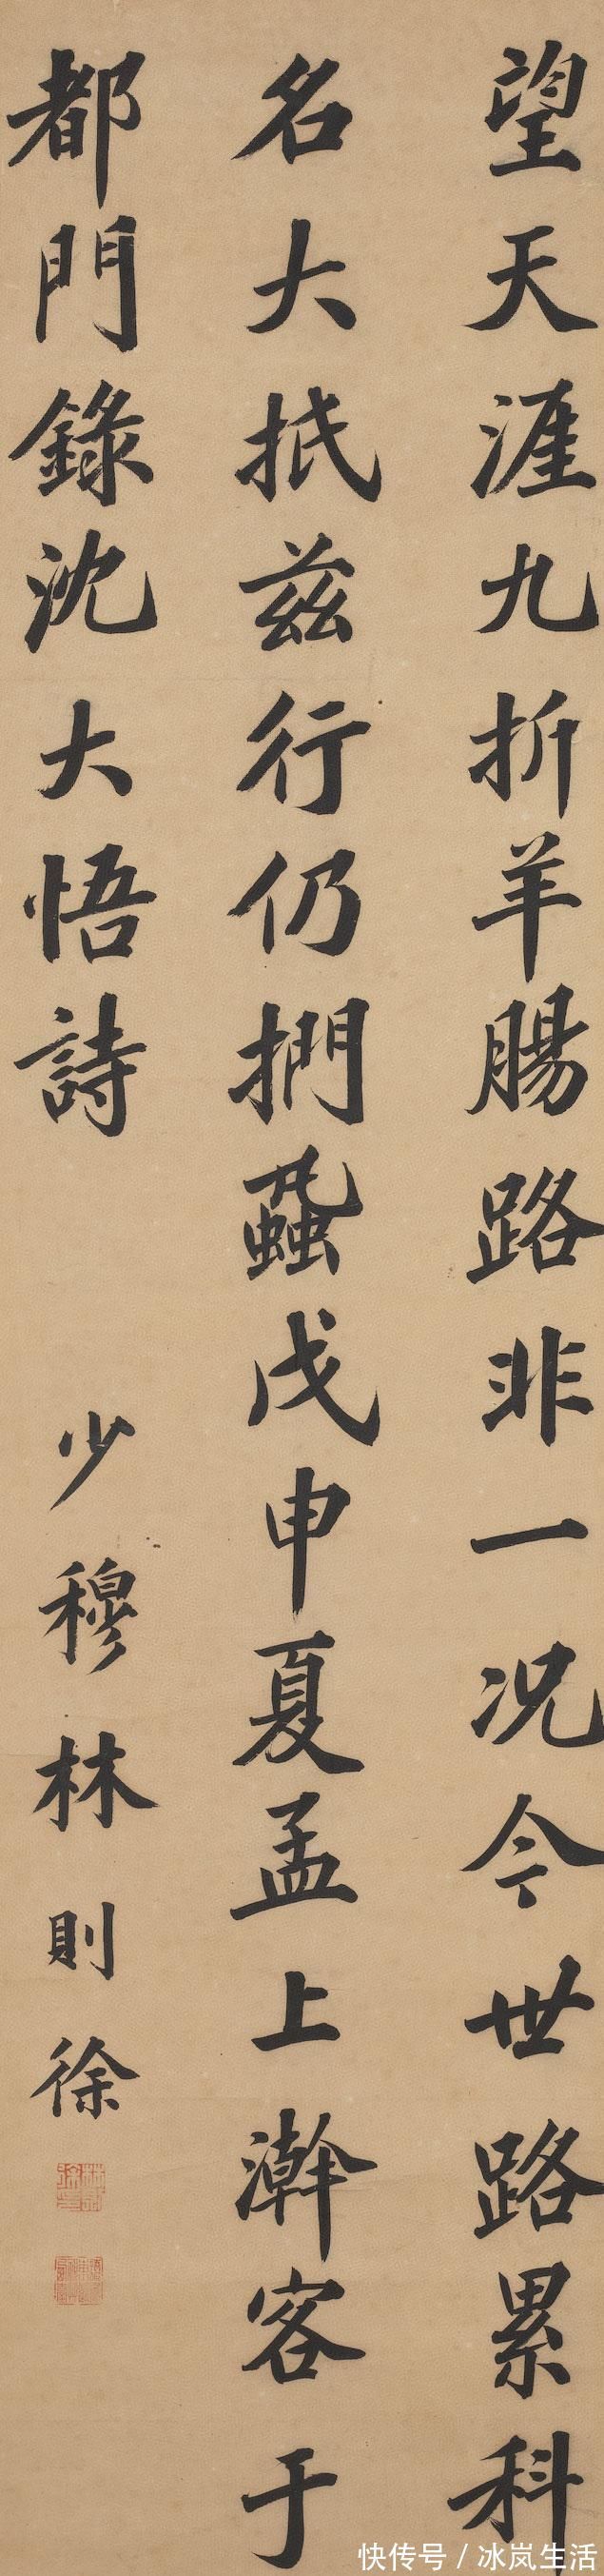 望天涯九折羊腸路非一况今世路累科
名大抵兹行仍捫蝨戊申夏孟上澣客于
都門錄沈大悟詩 少穆林則徐
快传号 / 冰岚生活